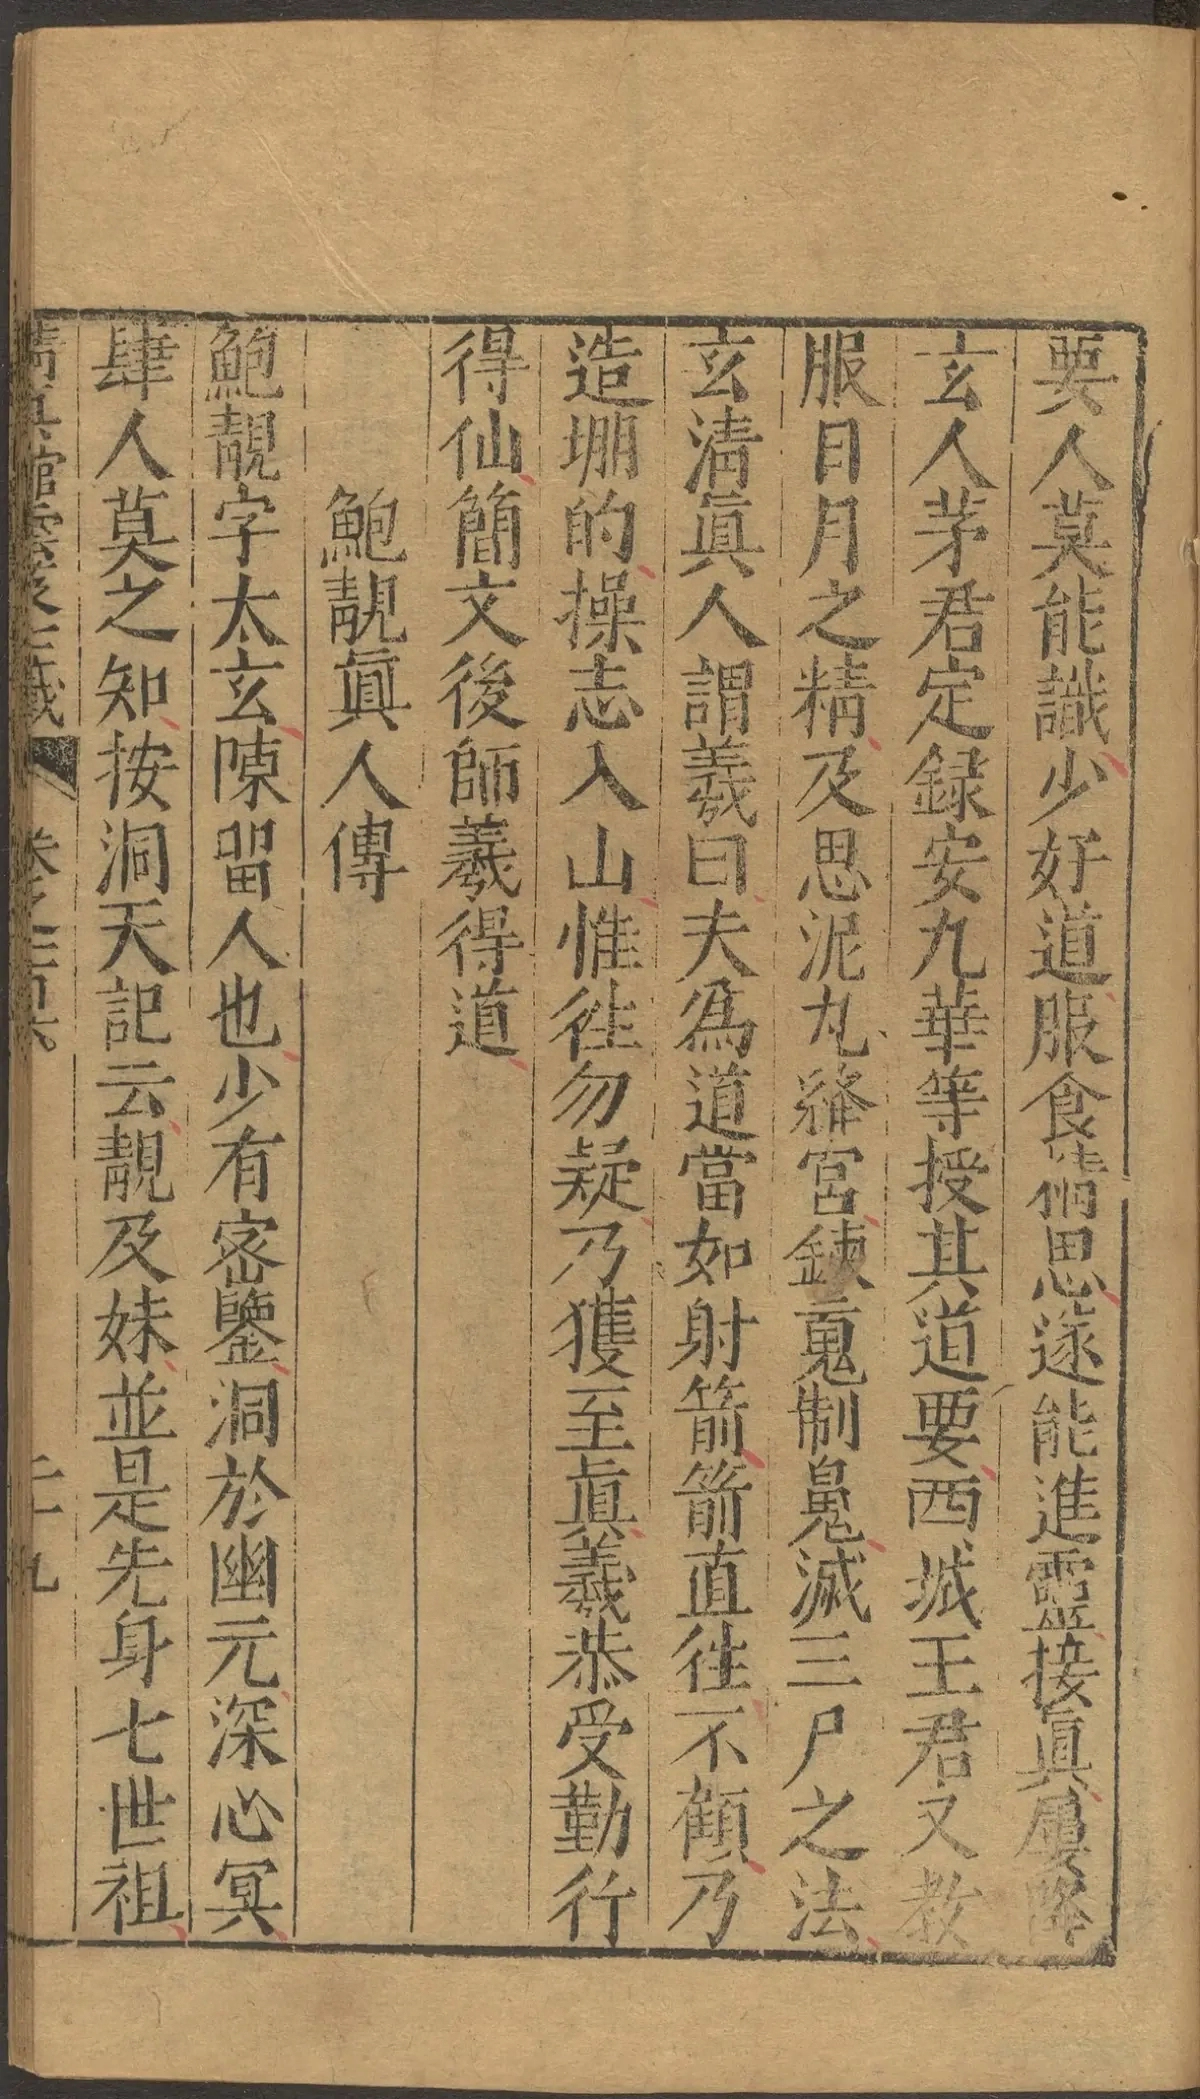 要人莫能識少好道服食精思遂能進靈接眞屢降
玄人茅君定録安九華等授其道要西城王君又教
服日月之精及思泥丸絳宮鍊䰟制鬽滅三尸之法
玄清眞人謂羲曰夫爲道當如射箭箭直徃不顧乃
造堋的操志入山惟徃勿疑乃獲至眞羲恭受勤行
得仙簡文後師羲得道
鮑靚眞人傳
鮑靚字太玄陳留人也少有密鑒洞於幽元深心冥
肆人莫之知按洞天記云靚及妹並是先身七世祖
清眞館雲笈七籤 卷之一百六 二十九